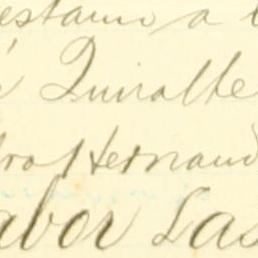 estamo a l
Quiralte
dro Hernand
abor Las